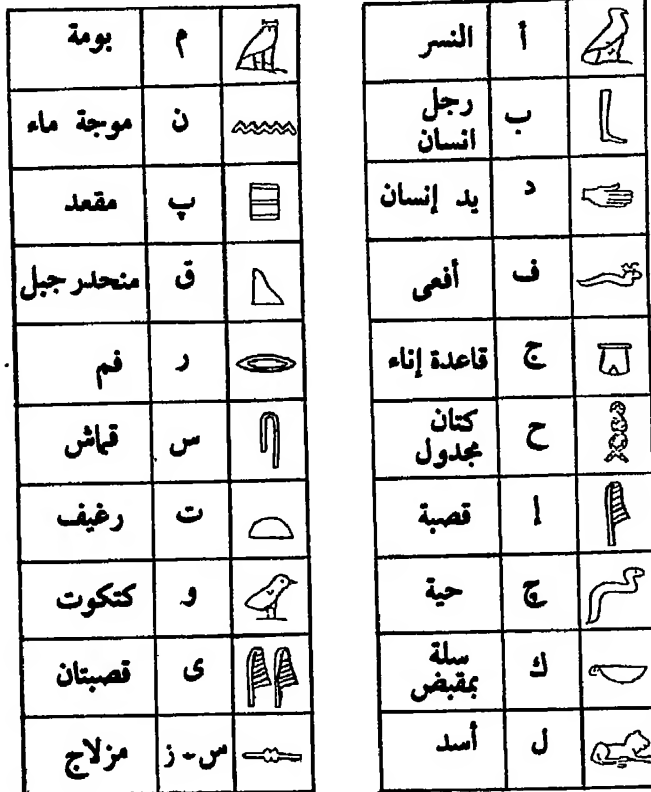 النسر أ
رجل انسان ب
يد إنسان د
أفعى ف
قاعدة إناء ج
كتان مجدول ح
قصبة إ
حية چ
سلة بمقبض ك
أسد ل
بومة م
موجة ماء ن
مقعد پ
منحدر جبل ق
فم ر
قماش س
رغيف ت
كتكوت و
قصبتان ى
مزلاج س - ز